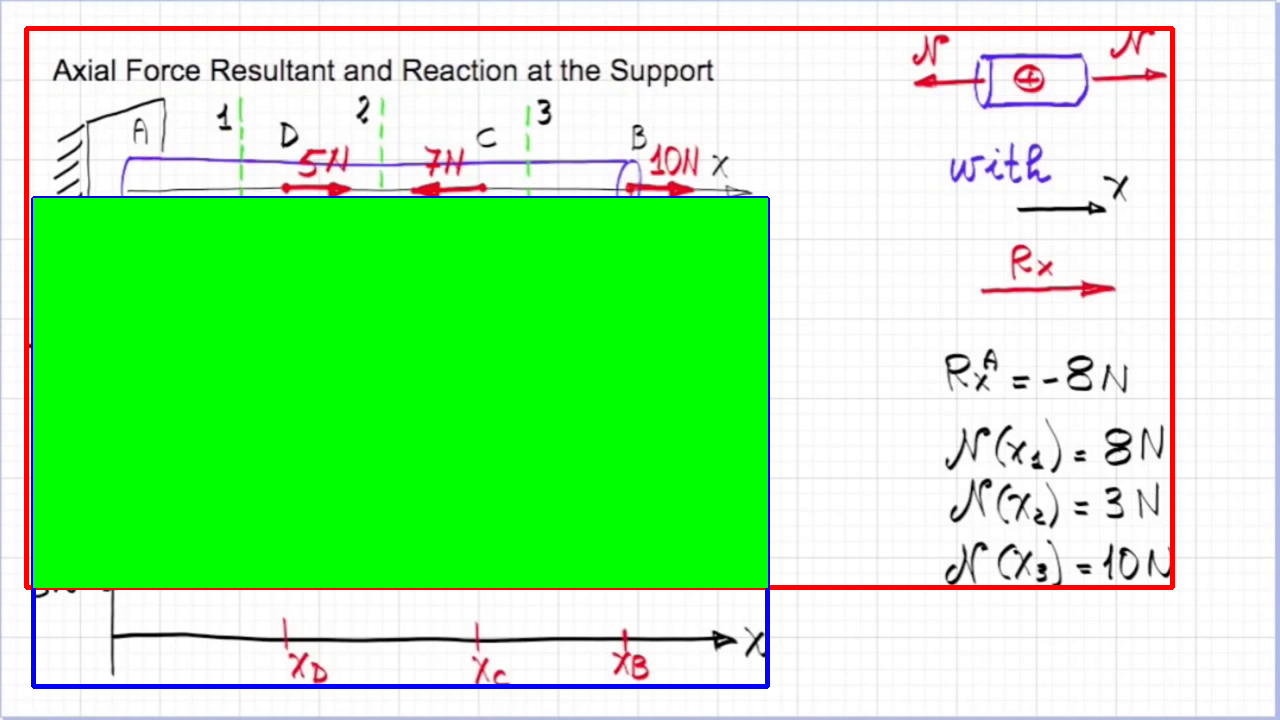 Axial Force Resultant and Reaction at the Support
N N
A 1 D 2 C 3 B
5N 7N 10N X
with
X
Rx
RxA = -8N
N(x1) = 8N
N(x2) = 3N
N(x3) = 10N
X
XD XC XB